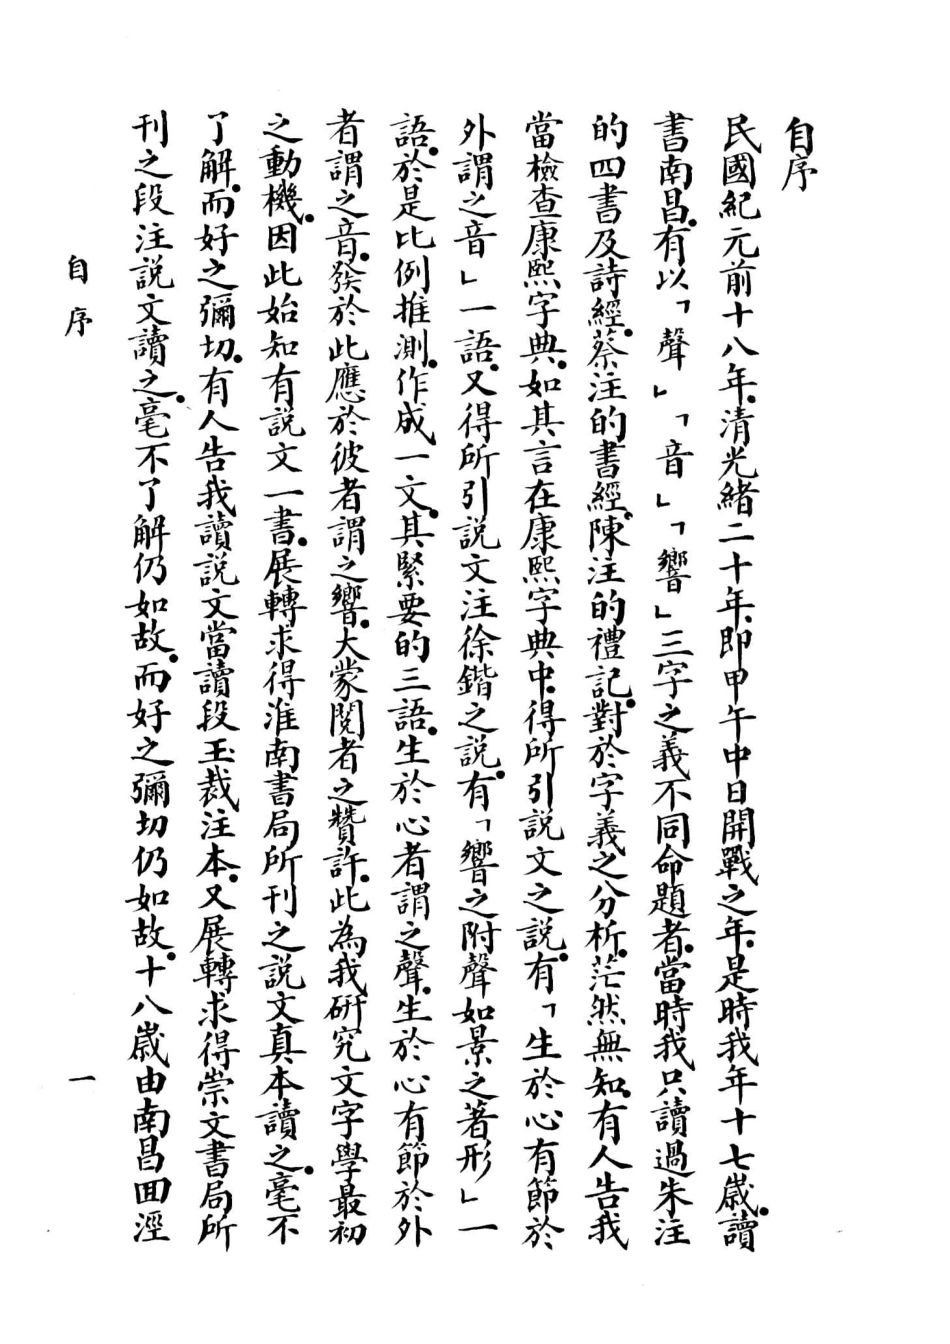 自序
民國紀元前十八年.清光緒二十年.即甲午中日開戰之年.是時我年十七歲.讀
書南昌.有以「聲」「音」「響」三字之義不同命題者.當時我只讀過朱注
的四書及詩經.蔡注的書經.陳注的禮記.對於字義之分析.茫然無知.有人告我
當檢查康熙字典.如其言在康熙字典中.得所引說文之說.有「生於心有節於
外謂之音」一語.又得所引說文注徐鍇之說.有「響之附聲如景之著形」一
語.於是比例推測.作成一文.其緊要的三語.生於心者謂之聲.生於心有節於外
者謂之音.發於此應於彼者謂之響.大蒙閱者之贊許.此為我研究文字學最初
之動機.因此始知有說文一書.展轉求得淮南書局所刊之說文真本讀之.毫不
了解.而好之彌切.有人告我讀說文當讀段玉裁注本.又展轉求得崇文書局所
刊之段注說文讀之.毫不了解仍如故.而好之彌切仍如故.十八歲由南昌囬涇
自序
一